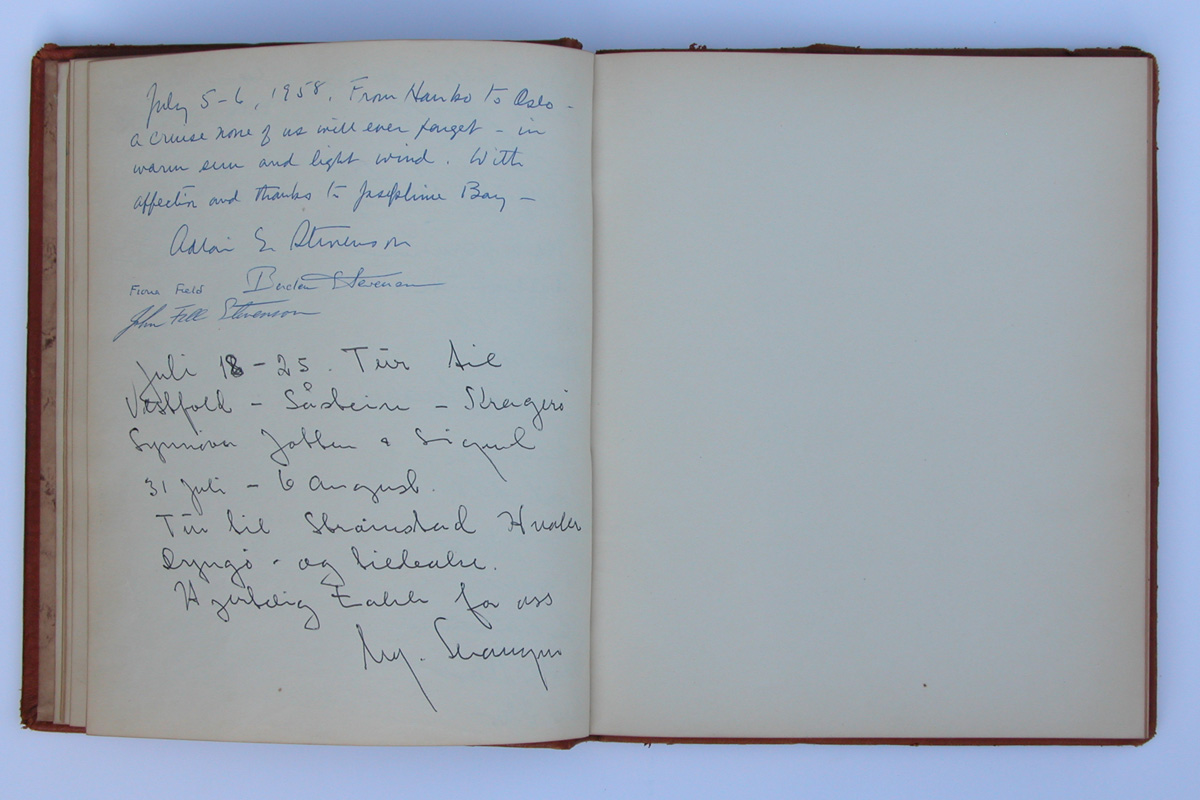 July 5-6, 1958. From Hanko to Oslo -
a cruise none of us will ever forget - in
warm sun and light wind. With
affection and thanks to Josephine Bay -
Adlai E Stevenson
Fiona Field Borden Stevenson
John Fell Stevenson
Juli 18-25. Tur til
Vestfold - - Kragerö
&
31 Juli - 6 August.
Tur til Strömstad Hvaler
Dyngö - og
Hjertelig Takk for oss